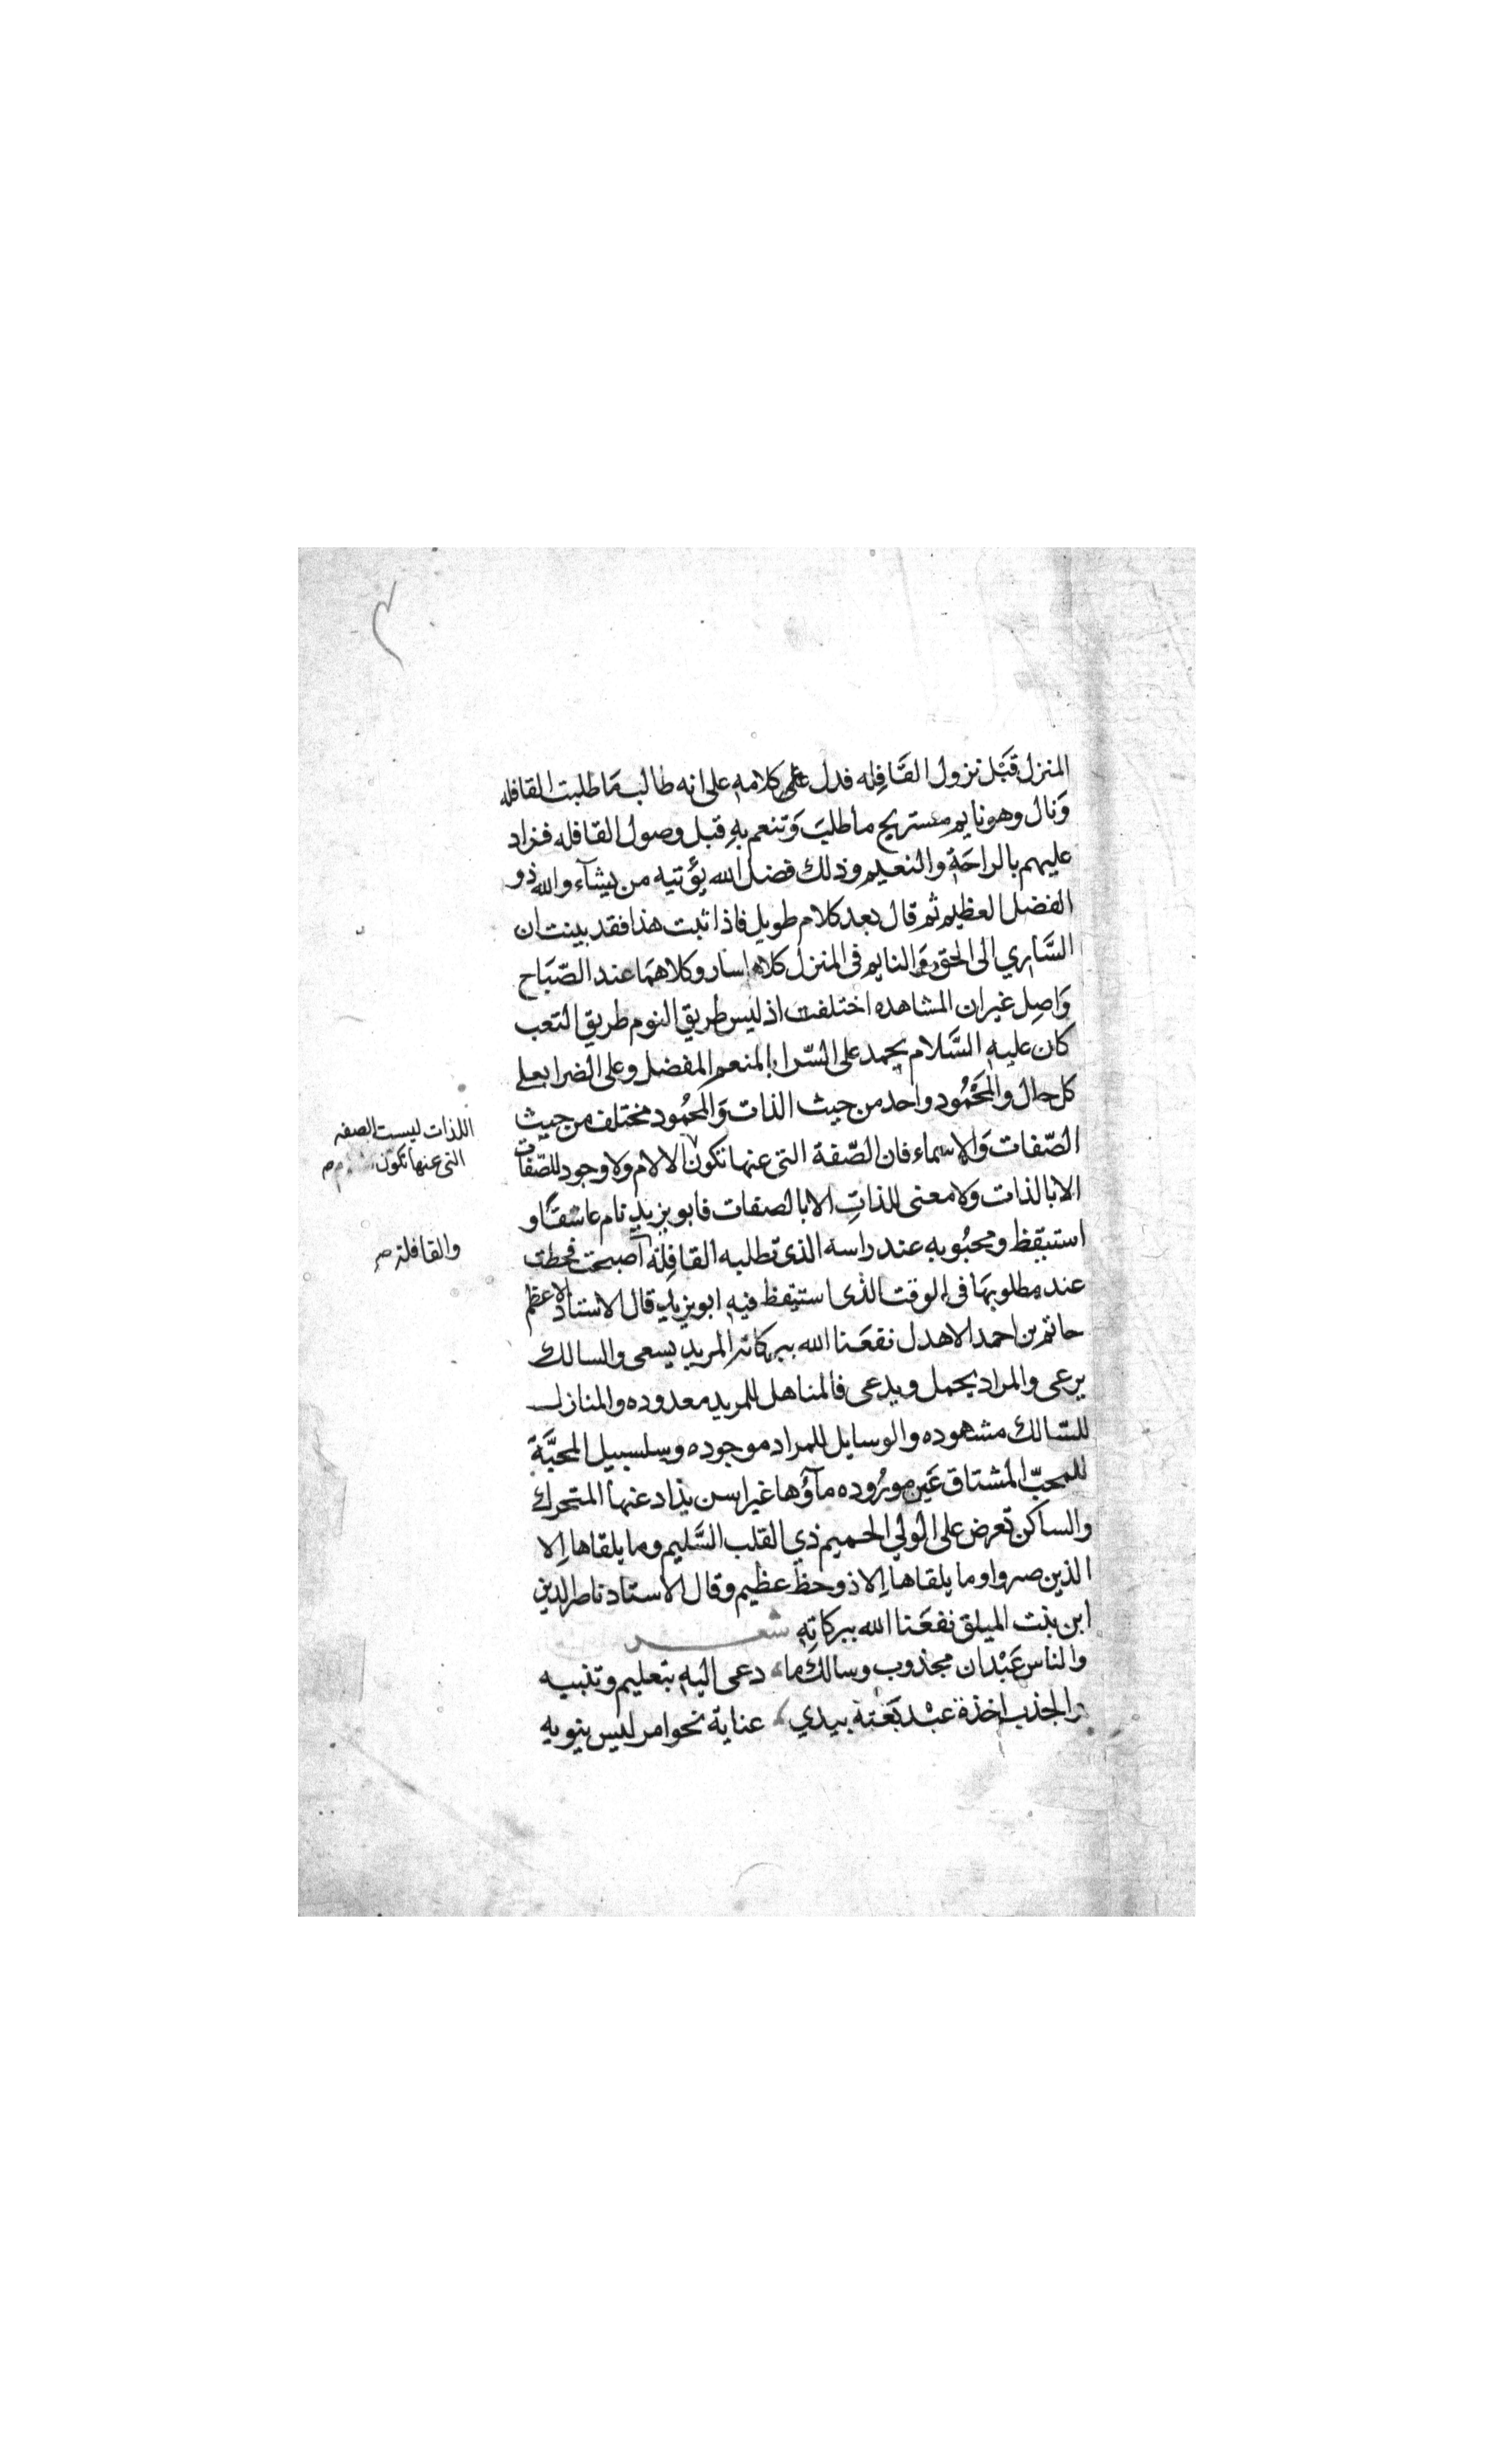 المنزل قَبَل نزول القَافِله فدل على كلامه على انه طالب مَا طلبت القافله
وَنال وهو نايم مستريح ما طلبَ وَتنعم بهِ قبل وصول القافله فزاد
عليهم بالراحَة والنعيم وذلك فضل الله يؤتيه من يشآء والله ذو
الفضل العظيم ثم قال بعد كلام طويل فاذا ثبت هذا فقد بينت ان
السَّاري الى الحق وَالنايم فى المنزل كلاهما سار وكلاهمَا عند الصّبَاح
وَاصِل غير ان المشاهده اختلفت اذ ليس طريق النوم طريق التعب
كان عليه السَّلام يحمد على السّراء المنعم المفضل وعلى الضرا بعلى
كل حال والمَحْمُود واحد من حيث الذات وَالمحمُود مختلف من حيث
الصّفات وَالاسماء فان الصّفة التى عنها تكون الالام ولا وجود للصّفات
اللذات ليست الصفه
التى عنها تكون
الا بالذات ولا معنى للذاتِ الا بالصفات فابو يزيد نام عاشقًا و
استيقظ ومحبُوبه عند راسه الذى تطلبه القافِلة اصبحت فحطت
والقافلة صح
عند مطلوبهَا فى الوقت الذى استيقظ فيه ابو يزيد قال الاستاذ الاعظم
حاتم بن احمد الاهدل نفعَنا الله ببركاته المريد يسعى والسالك
يرعى والمراد يحمل ويدعى فالمناهل للمريد معدوده والمنازل
للسّالك مشهوده والوسايل للمراد موجوده وسلسبيل المحبَّة
للمحبّ المشتاق عَين مورُوده مآؤها غير اسن يذاد عنها المتحرك
والساكن تعرض على الولي الحميم ذي القلب السَّليم وما يلقاها اِلا
الذين صبروا وما يلقاها اِلا ذو حظ عظيم وقال الاستاد ناصر الدين
ابن بنت الميلق نفعَنا الله ببركاتِهِ شعر
والناس عَبْدان مجذوب وسالك ما، دعى اليه بتعليم وتنبيه
والجذب اخذة عبْد بَغتة بيدي، عناية نحو امر ليس ينويه